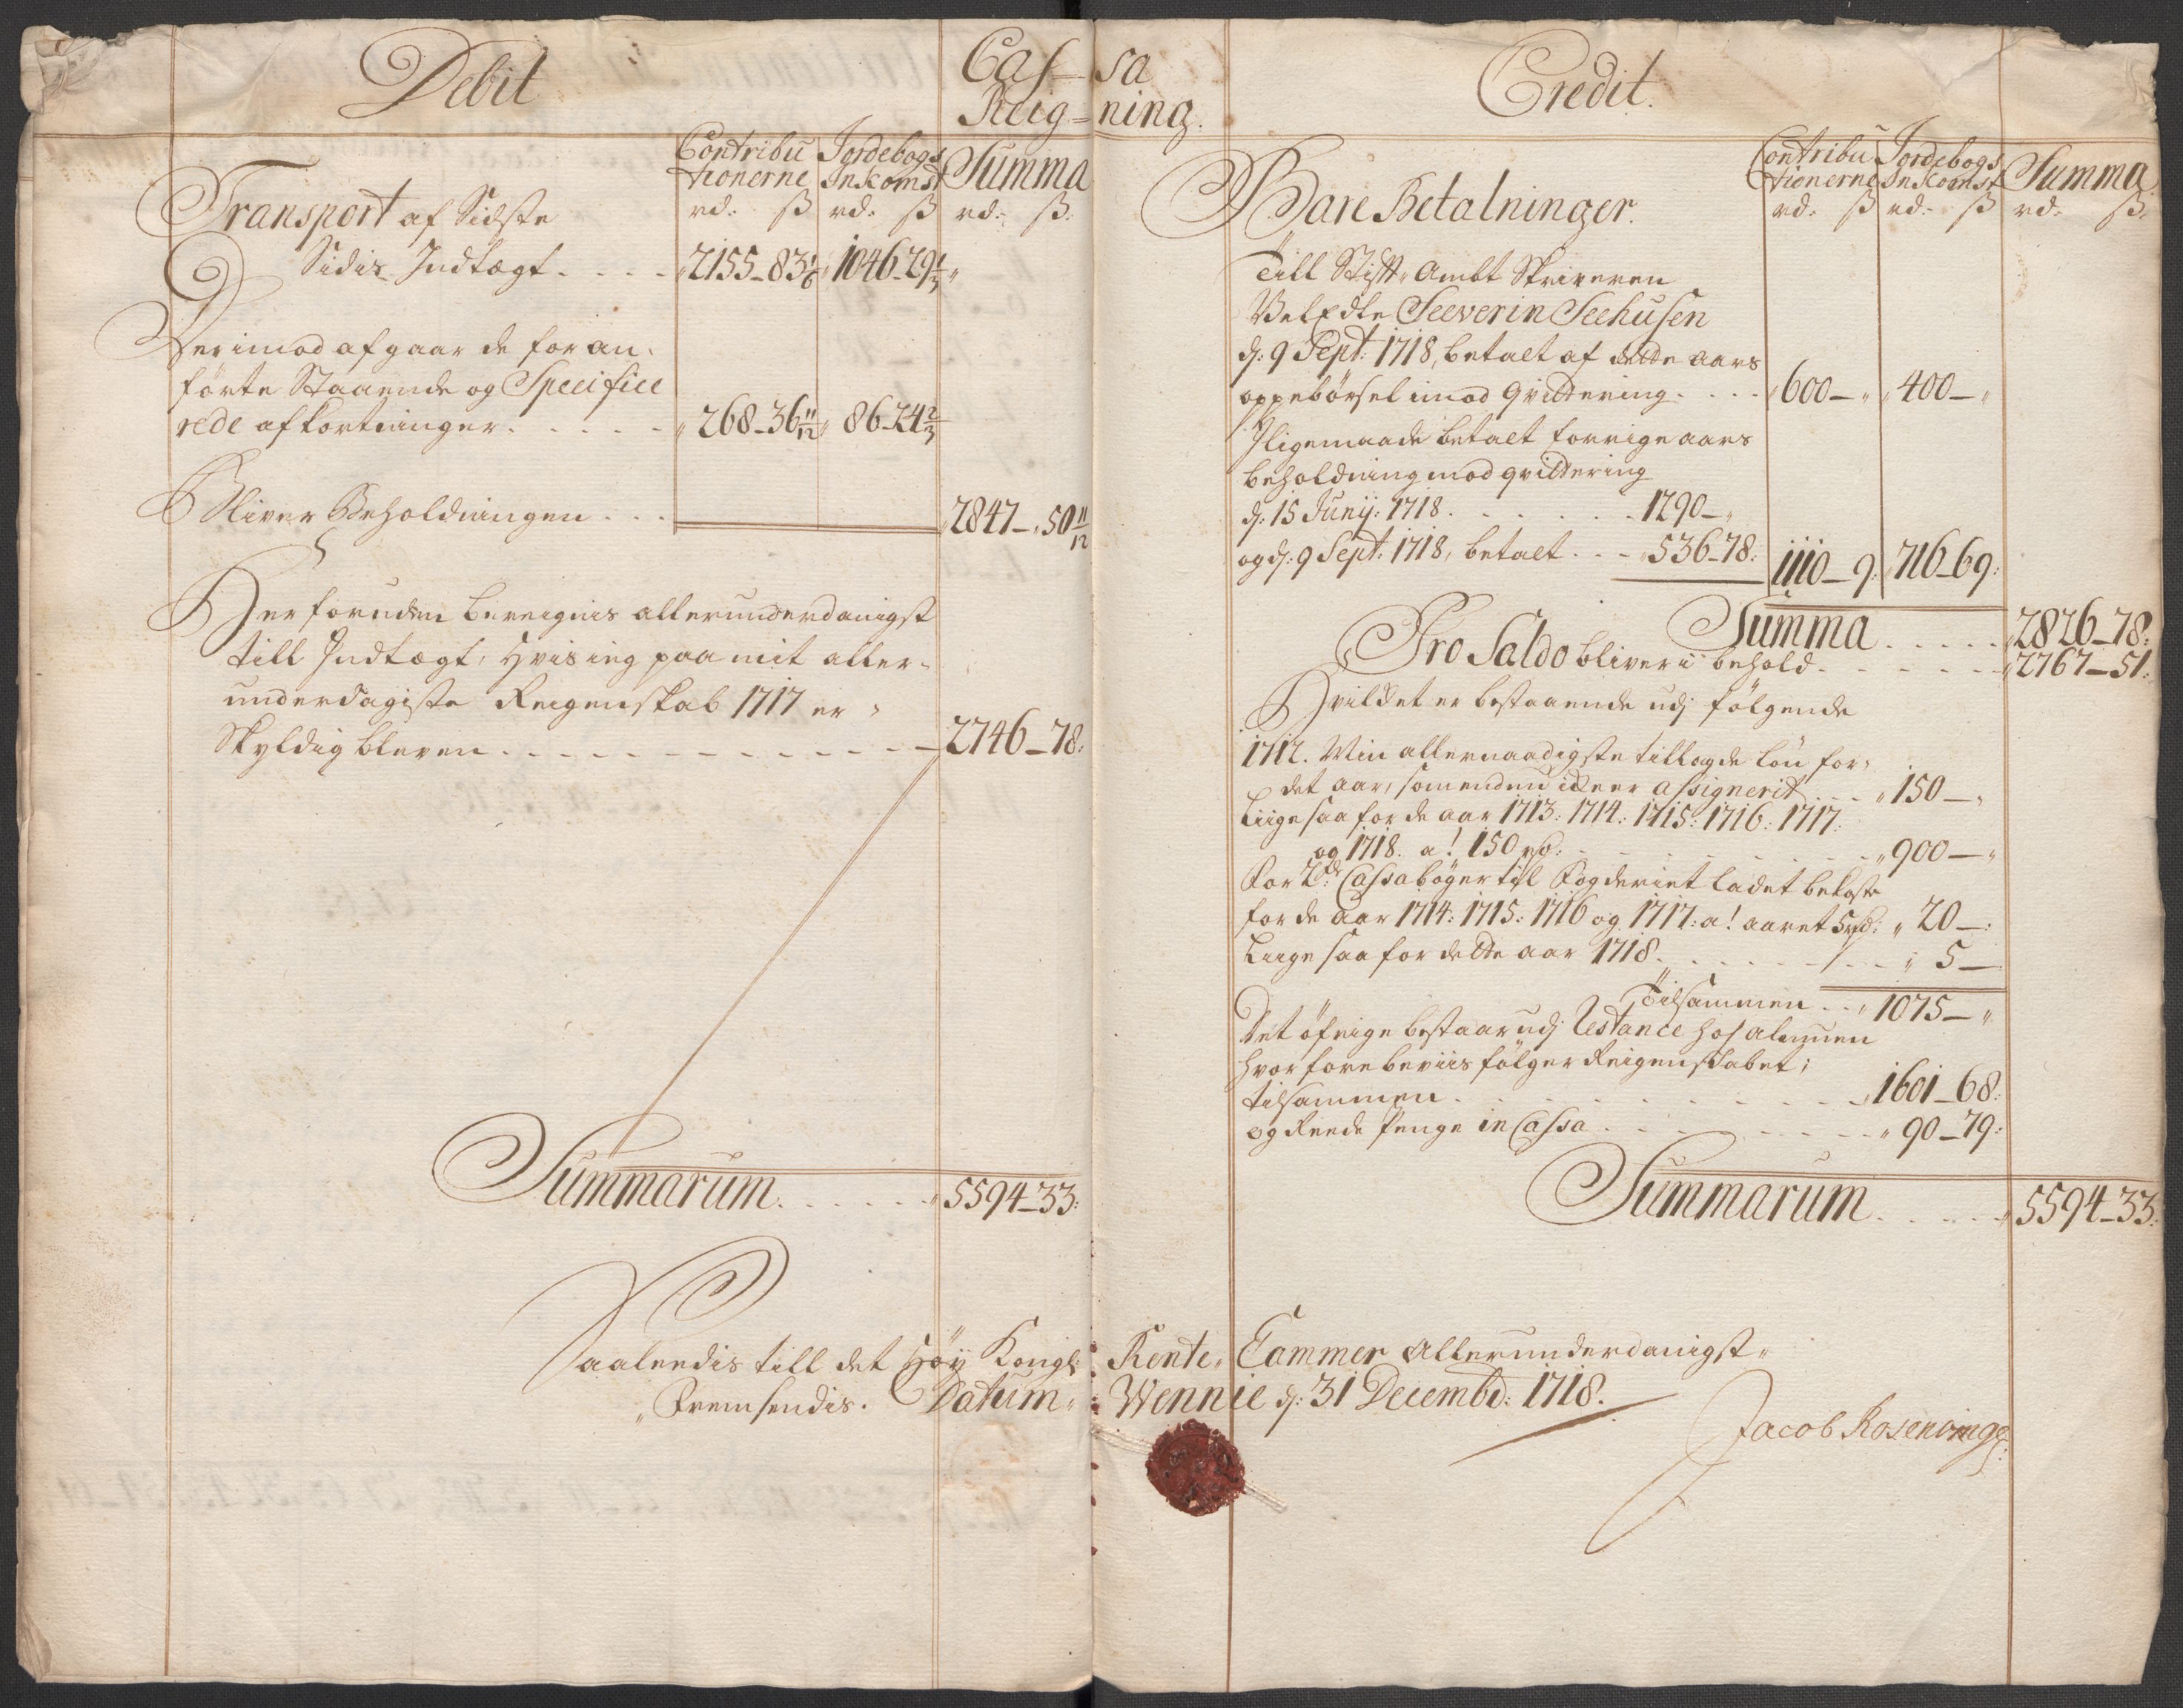 Debit
Cas-sa
Reig-ning.
Credit.
Contribu Jordebogs Summa
tionerne Inkomst
rd: ß rd: ß rd: ß:
Transport af Sidste
Sidis Indtægt. . . . 2155-83 1/6 1046-29 1/3 "
Derimod afgaar de for an,
førte Staaende og Specifice
rede afkortninger. . . . . 268-36 11/12 86-24 2/3
Bliver Beholdningen . . . 2847-50 11/12
Her foruden bereignis allerunderdanigst
till Indtægt, hvis ieg paa mit aller-
underdagiste Reigenskab 1717 er
Skyldig bleven. . . . . . 2746-78:
Summarum. . . . . . 5594-33:
Saaledis till det Höÿ Kongl:
Fremsendis. Datum
Contribu Jordebogs Summa
tionerne Inkomst
rd: ß rd: ß rd: ß:
Bare Betalninger.
Till Stift Ambt Skriveren
VelEdle Seeverin Seehusen
d: 9 Sept: 1718, betalt af dette aars
oppebörsel imod qvittering . . . . 600-" 400-"
Iligemaade betalt forrige aars
beholdning mod qvittering
d: 15 Junij: 1718. . . . . . . 1290-"
og d: 9 Sept: 1718, betalt . . . 536-78: 1110-9: 716-69:
Summa . . . . . 2826-78:
Pro Saldo bliver i behold . . . . . . 2767-51:
Hvilket er bestaaende udj følgende
1712. Min allernaadigste tillagde lön for,
det aar, som endnu icke er assignerit . . . 150-"
Liigesaa for de aar 1713: 1714: 1715: 1716: 1717:
og 1718. a! 150 rd: . . . . . . . 900-"
For 2de: Cassabøger til Fogderiet ladet bekoste
for de aar 1714: 1715: 1716 og 1717: a! aaret 5 rd: " 20-:
Liigesaa for dette aar 1718. . . . . . . " 5-
Tilsammen . . 1075-"
Det öfrige bestaar udj Restance hos almuen
hvorfore beviis følger Reigenskabet;
tilsammen . . . . . . . . . . 1601-68:
og Reede Penge in Cassa . . . . . . . " 90-79:
Summarum. . . . . . 5594-33:
Rente, Cammer Allerunderdanigst
Wennie d: 31 Decembd: 1718.
Jacob Rosenvinge